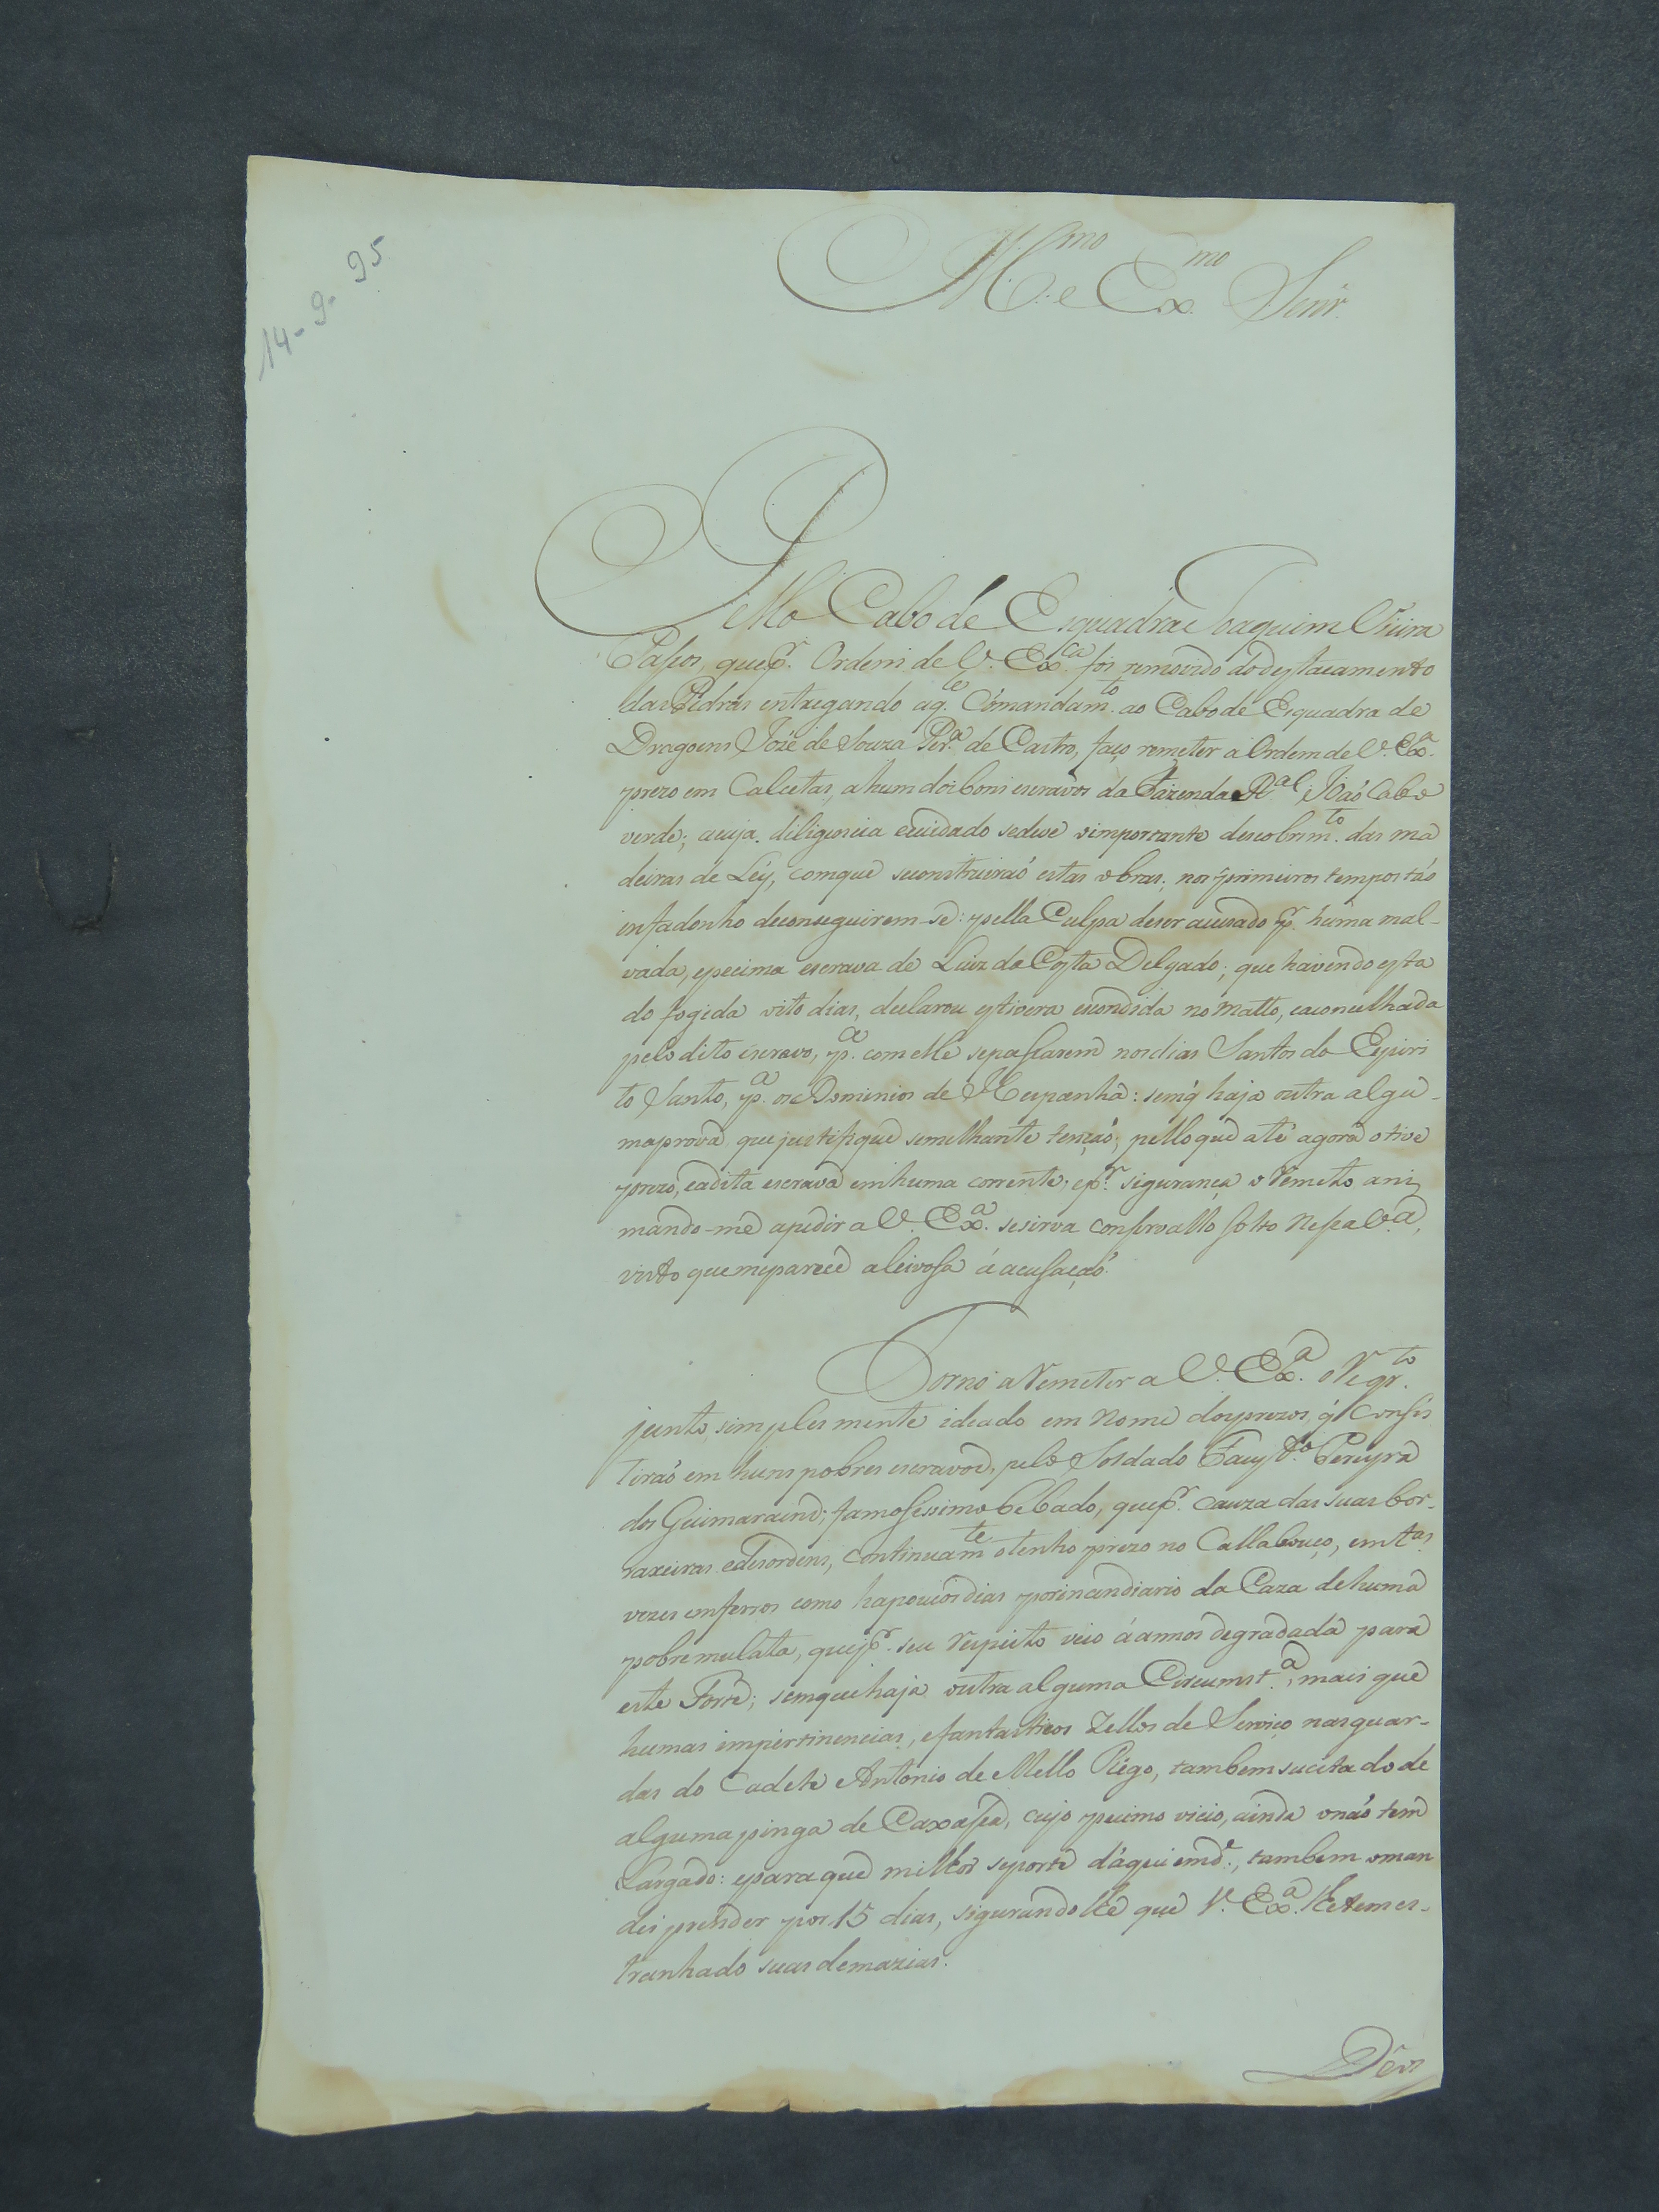 14-9-95
Ill.mo e Ex.mo Senr.
Pello Cabo de Esquadra Joaquim Vieira
Passos, que p.r Ordem de V. Ex.ca foi removido do destacamento
das Pedras entregando aq.e Cómandam.to ao Cabo de Esquadra de
Dragoens Jozé de Souza Per.a de Castro, faço remeter a Ordem de V. Ex.a
prezo em Calcetas, a hum dos bons escravos da Fazenda R.al Joáo Cabo
verde; a cuja diligencia e cuidado se deve o importante descobrim.to das ma
deiras de Ley, com que se construiráo estas obras, nos primeiros tempos táo
infadonho de conseguirem-se: pella Culpa de ser acuzado p.r húma mal-
vada, e pecima escrava de Luiz da Costa Delgado; que havendo esta
do fogida oito dias, declarou estivera escondida no Matto, e aconculhada
pelo dito escravo, p.a com elle se passarem nos dias Santos do Espiri
to Santo, p.a os Dominios de Hespanha: sem q haja outra algu-
ma prova que justifique semelhante tenção; pello que até agora o tive
prezo, e a dita escrava em huma corrente; e p.r sigurança o Remeto ani
mando-me a pedir a V. Ex.a se sirva consirvallo solto nessa V.a,
visto que me parece aleivosa á acusação.
Torno a Remeter a V. Ex.a o Reqr.to
junto, simplesmente ideado em Nome dos prezos, q Consis
tiráo em huns pobres escravos, pelo Soldado Faust.o Pereyra
dos Guimaraens; famosissimo bebado, que p.r cauza das suas bor-
raxeiras e desordens, continuam.te o tenho prezo no Callabouço, em t.as
vezes em ferros como ha poucos dias por incendiario da Caza de huma
pobre mulata, que p.r seu Respeito veio á annos degradada para
este Forte; sem que haja outra alguma Circumst.a, mais que
humas impertinencias, e fantasticos Zellos de Serviço nas guar-
das do Cadete Antonio de Mello Rêgo, tambem sucitado de
alguma pinga de Caxassa, cujo pecimo vicio, ainda o não tem
Largado: e para que milhor se porte dáqui em d.e, tambem o man
dei prender por 15 dias, sigurandolhe que V. Ex.a lhe tem es-
tranhado suas demazias.
Deos